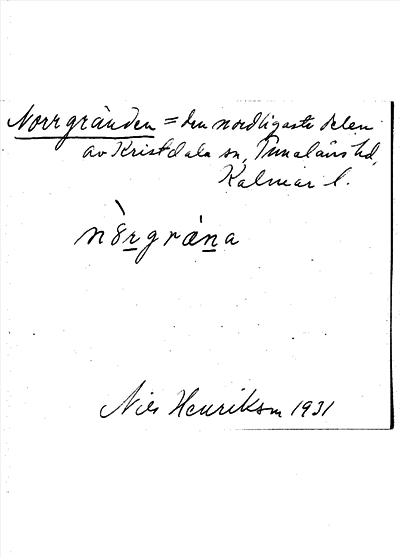 Norrgränden = den nordligaste delen
av Kristdala sn, Tunaläns hd,
Kalmar l.
nȯrgræna
Nils Henrikson 1931